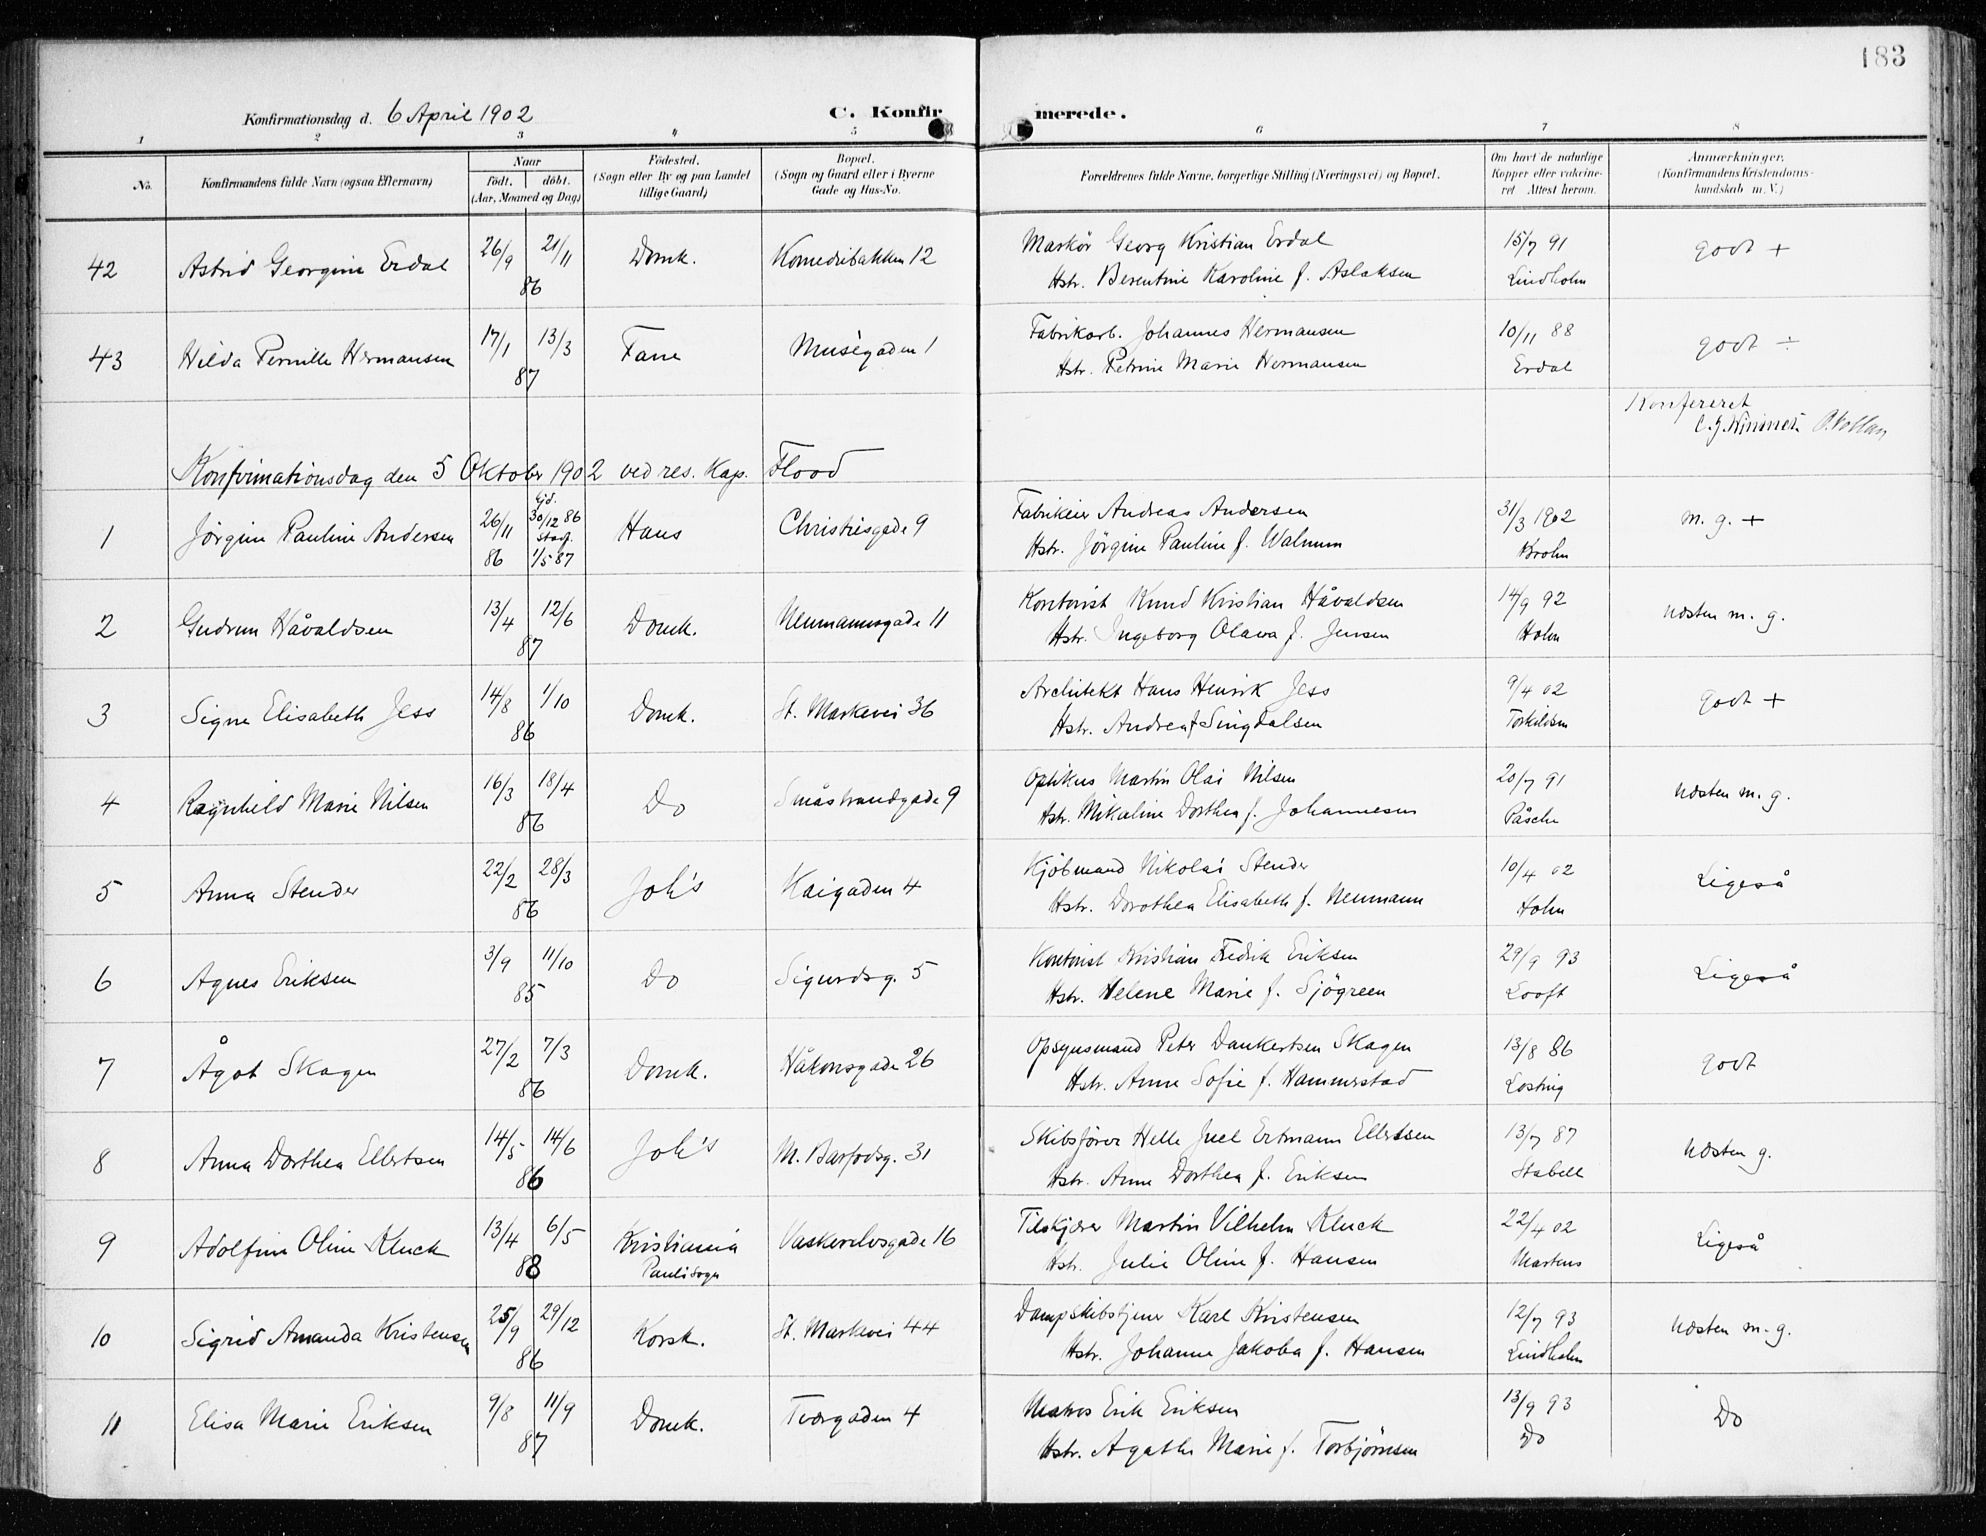 183
Konfirmationsdag d. 6 April 1902 C. Konfirmerede.
1 2 3 " 5 6 7 8
No. Konfirmandens fulde Navn (ogsaa Efternavn) Naar födt. döbt. (Aar, Maaned og Dag) Födested. (Sogn eller By og paa Landet tillige Gaard) Bopæl. (Sogn og Gaard eller i Byerne Gade og Hus-No. Forældrenes fulde Navne, borgerlige Stilling (Næringsvei) og Bopæl. Om havt de naturlige Kopper eller vakcineret Attest herom. Anmærkninger. (Konfirmandens Kristendomskundskab m. V.)
42 Astrid Georgine Erdal 26/9 21/11 86 Domk. Komediebakken 12 Markör Georg Kristian Erdal 15/7 91 godt +
Hstr. Berentine Karoline f. Aslaksen Lindholm
43 Hilda Pernille Hermansen 17/1 13/3 87 Fane Muségaden 1 Fabrikarb. Johannes Hermansen 10/11 88 godt ÷
Hstr. Petrine Marie Hermansen Erdal
Konfereret
Konfirmationsdag den 5 Oktober 1902 ved res. Kap. Flood
1 Jörgine Pauline Andersen 26/11 86 hjd. 30/12 86 stadf. 1/5 87 Haus Christiesgade 9 Fabrikeier Andreas Andersen 31/3 1902 m. g. +
Hstr. Jörgine Pauline f. Walnum Krohn
2 Gudrun Håvaldsen 13/4 12/6 87 Domk. Neumannsgade 11 Kontorist Knud Kristian Håvaldsen 14/9 92 næsten m. g.
Hstr. Ingeborg Olava f. Jensen Holm
3 Signe Elisabeth Jess 14/8 1/10 86 Domk. St. Markevei 36 Architekt Hans Henrik Jess 9/4 02 godt +
Hstr. Andrea f Singdalsen Torkildsen
4 Ragnhild Marie Nilsen 16/3 18/4 86 Do Småstrandgade 9 Optikus Martin Olai Nilsen 20/7 91 næsten m. g.
Hstr. Mikaline Dorthea f. Johannesen Påsche
5 Anna Stender 22/2 28/3 86 Joh's Kaigaden 4 Kjöbmand Nikolai Stender 10/4 02 Ligeså
Hstr. Dorothea Elisabeth f. Neumann Holm
6 Agnes Eriksen 3/9 11/10 85 Do Sigurdsg. 5 Kontorist Kristian Fredrik Eriksen 29/9 93 Ligeså
Hstr. Helene Marie f. Sjögreen Looft
7 Ågot Skagen 27/2 7/3 86 Domk. Håkonsgade 26 Opsynsmand Peter Dankertsen Skagen 13/8 86 godt
Hstr. Anne Sofie f. Hammerstad Losting
8 Anna Dorthea Ellertsen 14/5 14/6 86 Joh's M. Barfodsg. 31 Skibsförer Helle Juel Ertmann Ellertsen 13/7 87 næsten g.
Hstr. Anne Dorthea f. Eriksen Stabell
9 Adolfine Oline Kluck 13/4 6/5 88 Kristiania Pauli Sogn Vaskerelvsgade 16 Tilskjærer Martin Vilhelm Kluck 22/4 02 Ligeså
Hstr. Julie Oline f. Hansen Martens
10 Sigrid Amanda Kristensen 25/9 29/12 86 Korsk. St. Markevei 44 Dampskibstjener Karl Kristensen 12/7 93 næsten m. g.
Hstr. Johanne Jakoba f. Hansen Lindholm
11 Elisa Marie Eriksen 9/8 11/9 87 Domk. Tværgaden 4 Matros Erik Eriksen 13/9 93 Do
Hstr. Agathe Marie f. Torbjörnsen Do